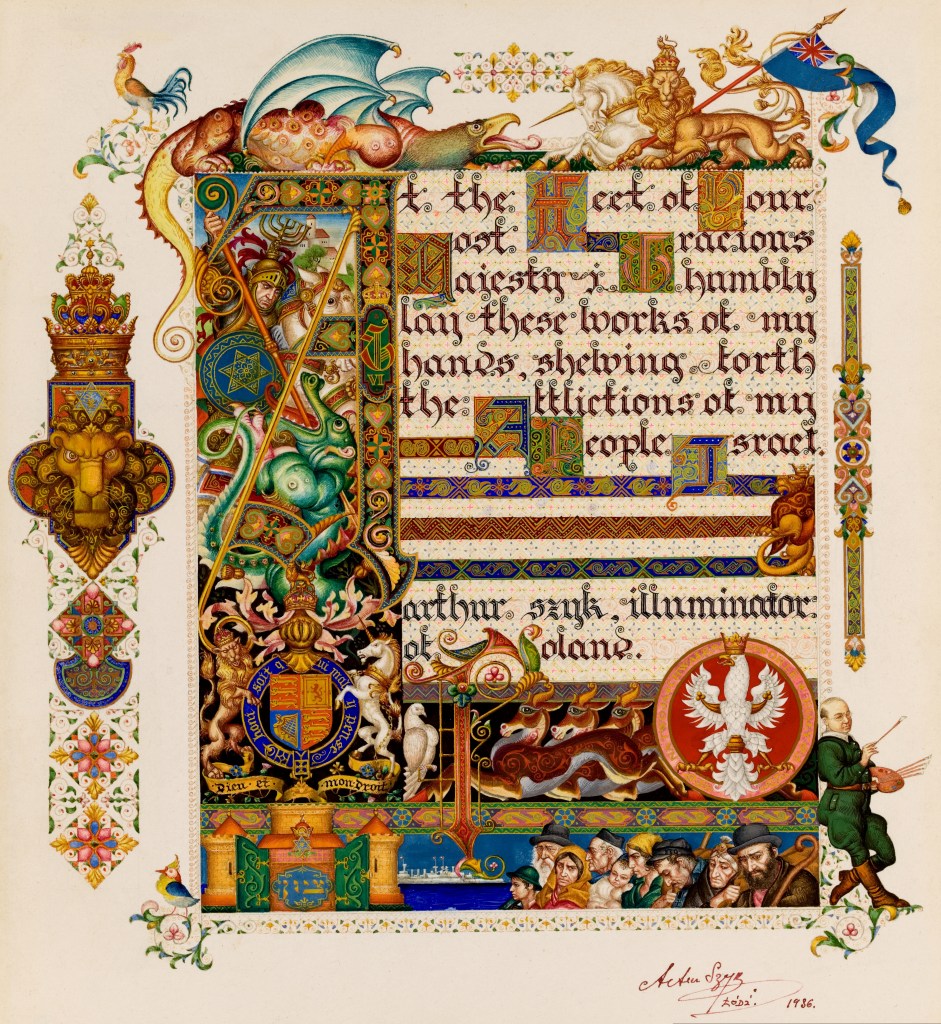 At the Feet of Your
Most Gracious
Majesty i humbly
lay these works of my
hands, shewing forth
the Afflictions of my
People Israel.
G VI
arthur szyk, illuminator
of Poland.
honi soit qui mal y pense
Dieu et mon droit
ציון
Arthur Szyk
Łódź. 1936.